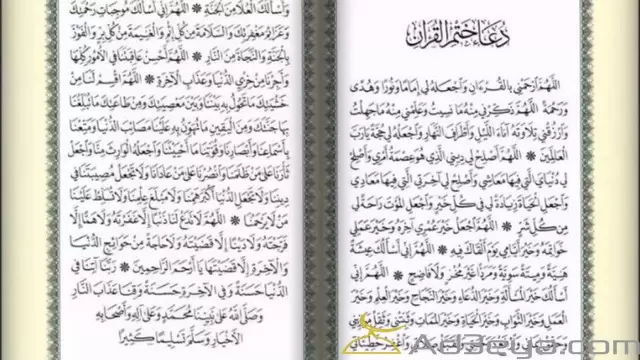 دعاء ختم القرآن
اللهم ارحمني بالقرءان واجعله لي إماما ونورا وهدى
ورحمة اللهم ذكرني منه ما نسيت وعلمني منه ما جهلت
وارزقني تلاوته آناء الليل وأطراف النهار واجعله لي حجة يارب
العالمين اللهم أصلح لي ديني الذي هو عصمة أمري وأصلح
لي دنياي التي فيها معاشي وأصلح لي آخرتي التي فيها معادي
واجعل الحياة زيادة لي في كل خير واجعل الموت راحة لي
من كل شر اللهم اجعل خير عمري آخره وخير عملي
خواتمه وخير أيامي يوم ألقاك فيه اللهم إني أسألك عيشة
هنية وميتة سوية ومردا غير مخز ولا فاضح اللهم إني
أسألك خير المسألة وخير الدعاء وخير النجاح وخير العلم وخير
العمل وخير الثواب وخير الحياة وخير الممات وثبتني وثقل موازيني
واغفر خطيئاتي
وأسألك العلا من الجنة اللهم إني أسألك موجبات رحمتك
وعزائم مغفرتك والسلامة من كل إثم والغنيمة من كل بر والفوز
بالجنة والنجاة من النار اللهم أحسن عاقبتنا في الأمور كلها
وأجرنا من خزي الدنيا وعذاب الآخرة اللهم اقسم لنا من
خشيتك ما تحول به بيننا وبين معصيتك ومن طاعتك ما تبلغنا
بها جنتك ومن اليقين ما تهون به علينا مصائب الدنيا ومتعنا
بأسماعنا وأبصارنا وقوتنا ما أحييتنا واجعله الوارث منا واجعل
ثأرنا على من ظلمنا وانصرنا على من عادانا ولا تجعل مصيبتنا في
ديننا ولا تجعل الدنيا أكبر همنا ولا مبلغ علمنا ولا تسلط علينا
من لا يرحمنا اللهم لا تدع لنا ذنبا إلا غفرته ولا هما إلا
فرجته ولا دينا إلا قضيته ولا حاجة من حوائج الدنيا
والآخرة إلا قضيتها يا أرحم الراحمين ربنا آتنا في
الدنيا حسنة وفي الآخرة حسنة وقنا عذاب النار
وصلى الله على نبينا محمد وعلى آله وأصحابه
الأخيار وسلم تسليما كثيرا